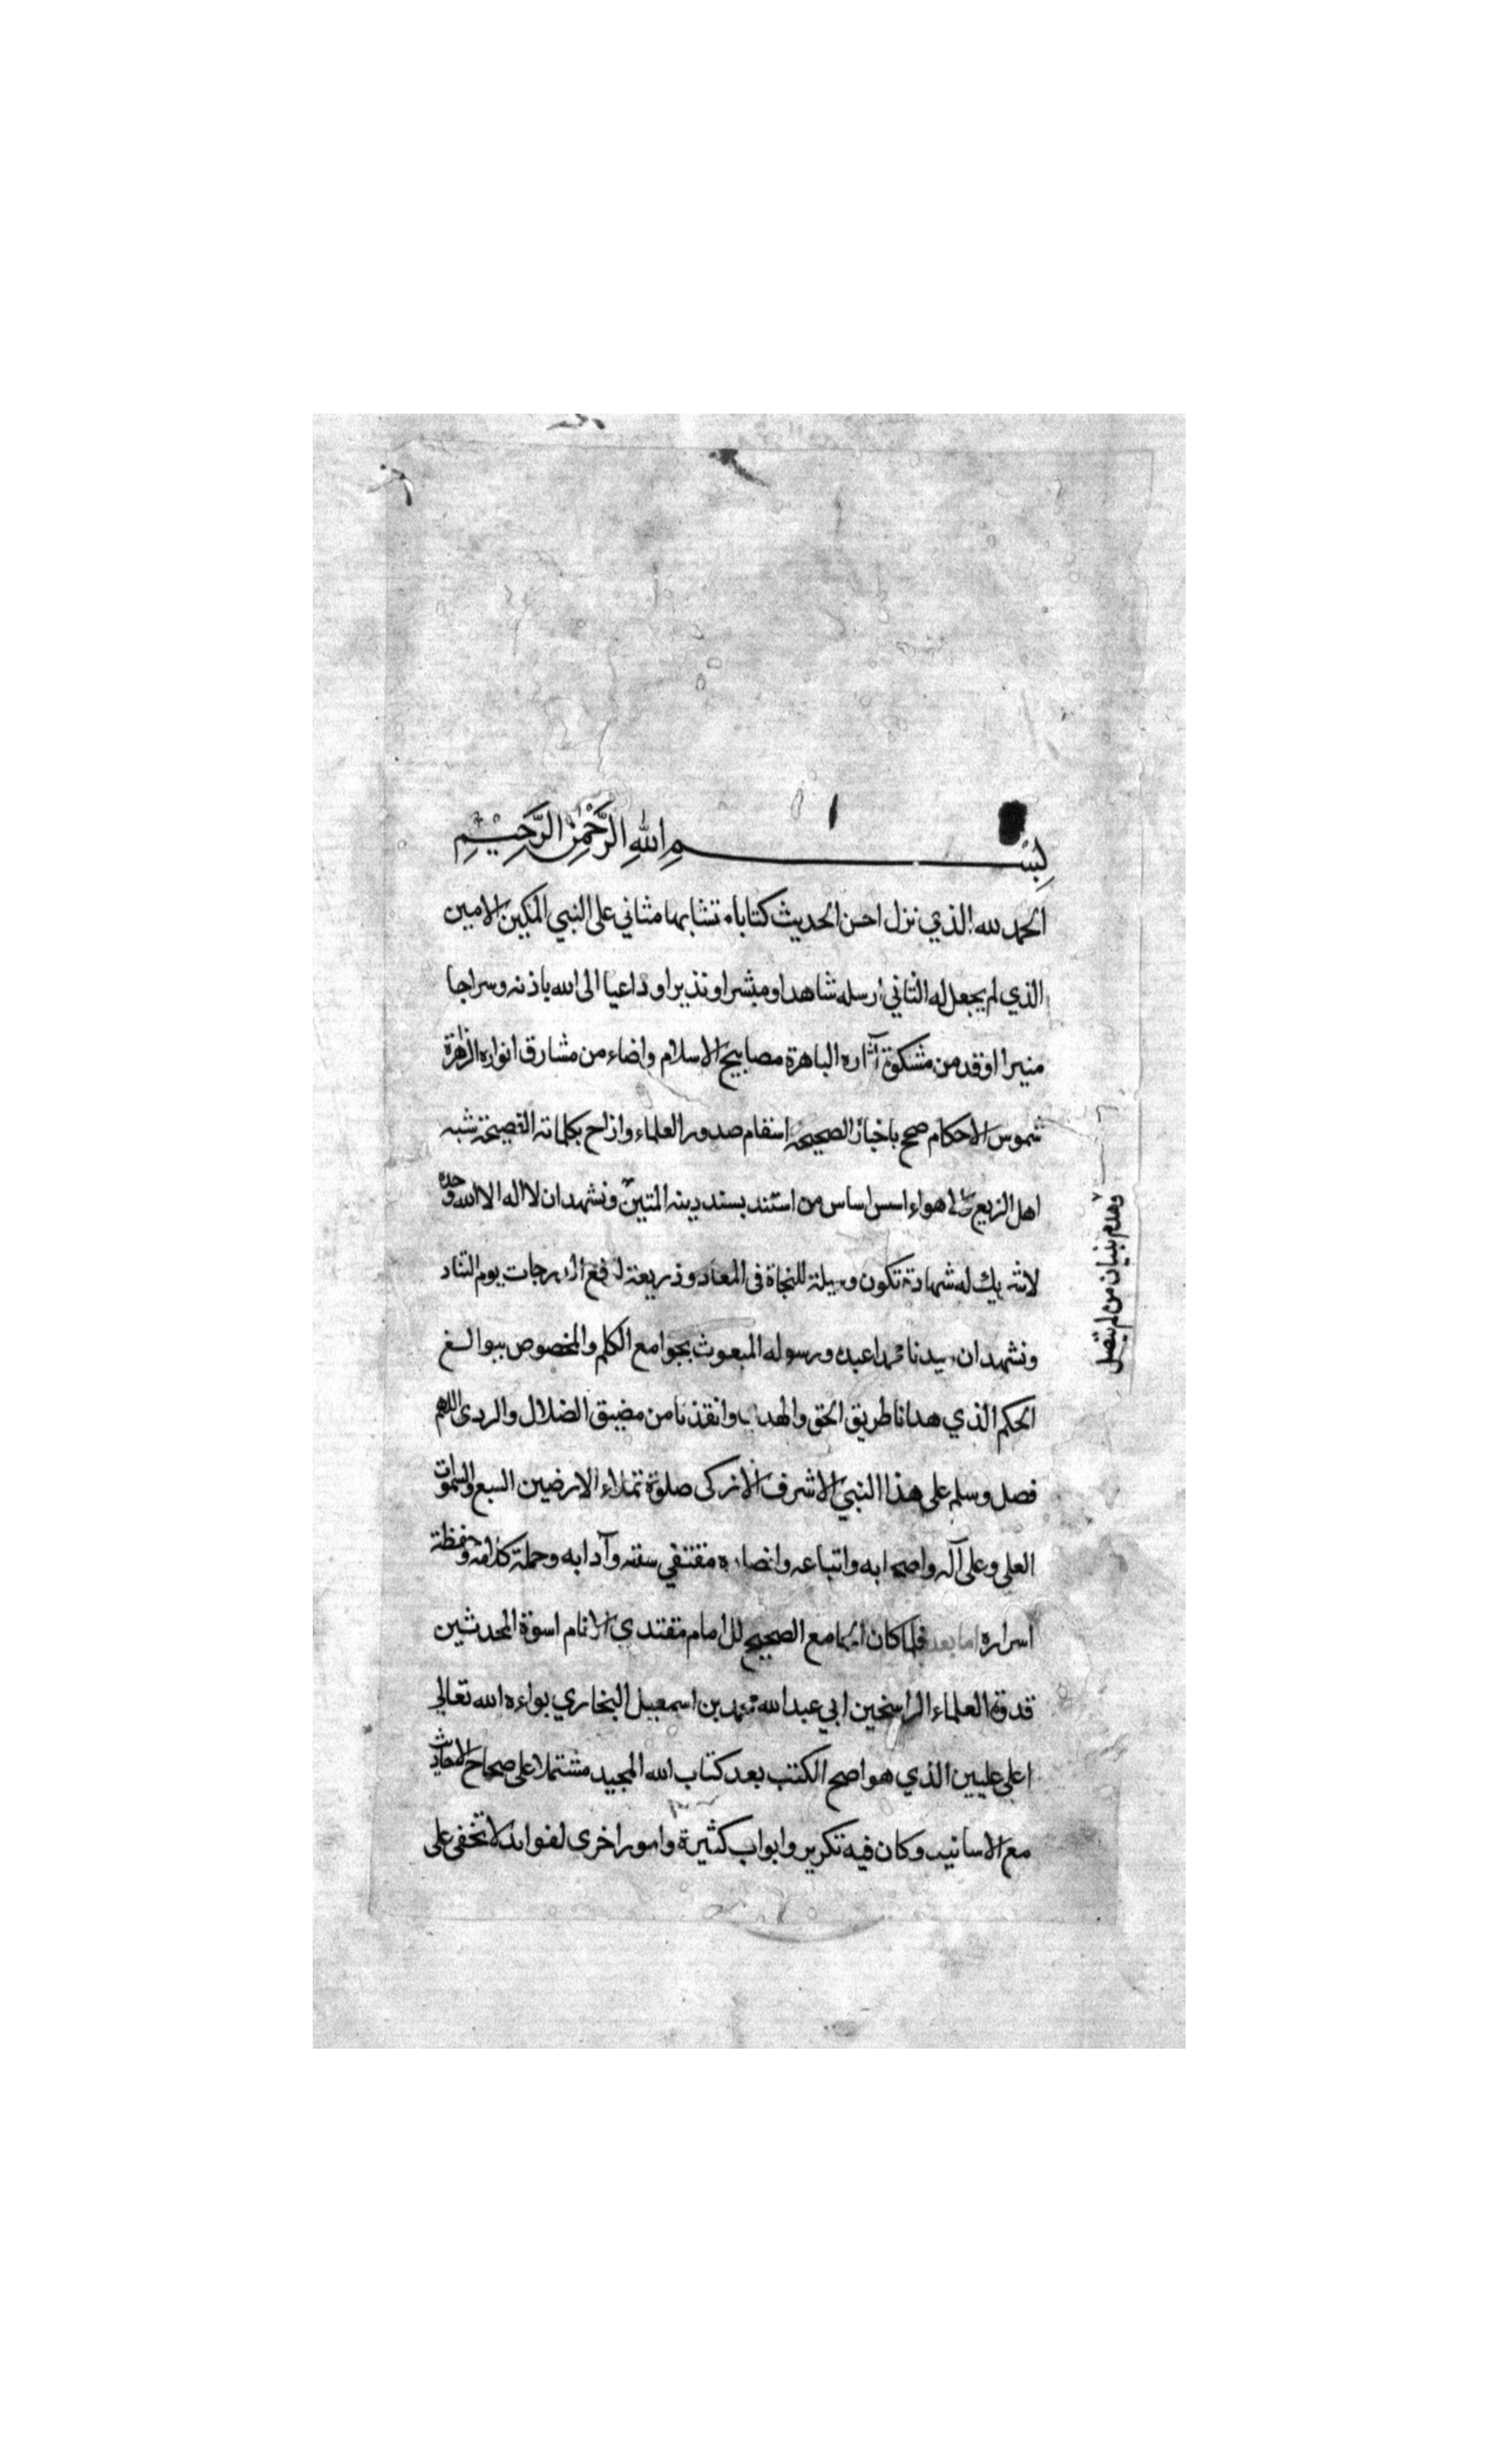 بِسْمِ اللهِ الرَّحْمٰنِ الرَّحِيْمِ
الحمد لله الذي نزل احسن الحديث كتابا متشابها مثاني على النبي المكين الامين
الذي لم يجعل له الثاني ارسله شاهدا ومبشرا ونذيرا وداعيا الى الله باذنه وسراجا
منيرا اوقد من مشكوة آثاره الباهرة مصابيح الاسلام واضاء من مشارق انواره الزاهرة
شموس الاحكام صحح باخباره الصحيحة اسقام صدور العلماء وازاح بكلماته الفصيحة شبه
اهل الزيغ والاهواء اسس اساس من استند بسند دينه المتين ونشهد ان لا اله الا الله وحده
وهدم بنيان من لم يتصل
لا شريك له شهادة تكون وسيلة للنجاة في المعاد وذريعة لرفع الدرجات يوم التناد
ونشهد ان سيدنا محمدا عبده ورسوله المبعوث بجوامع الكلم والمخصوص ببوالغ
الحكم الذي هدانا طريق الحق والهدى وانقذنا من مضيق الضلال والردى اللهم
فصل وسلم على هذا النبي الاشرف الازكى صلوة تملاء الارضين السبع والسموات
العلى وعلى آله واصحابه واتباعه وانصاره مقتفي سننه وآدابه وحملة كلامه وحفظة
اسراره اما بعد فلما كان الجامع الصحيح للامام مقتدي الانام اسوة المحدثين
قدوة العلماء الراسخين ابي عبد الله محمد بن اسمعيل البخاري بواءه الله تعالى
اعلى عليين الذي هو اصح الكتب بعد كتاب الله المجيد مشتملا على صحاح الاحاديث
مع الاسانيد وكان فيه تكرير وابواب كثيرة وامور اخرى لفوائد لا تخفى على